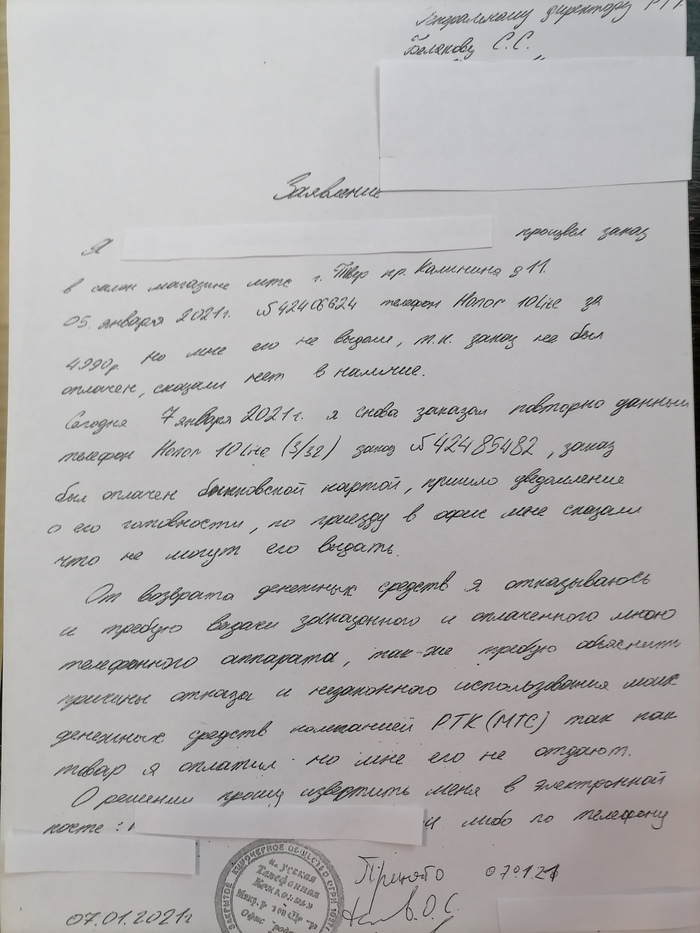 Генеральному директору РТК
Белякову С.С.
Заявление
Я произвел заказ
в салон магазине мтс г. Тверь пр. Калинина д 11.
05. января 2021г. №42406624 телефон Honor 10Lite за
4990р. но мне его не выдали, т.к. заказ не был
оплачен, сказали нет в наличие.
Сегодня 7 января 2021г. я снова заказал повторно данный
телефон Honor 10Lite (3/32) заказ №42485482, заказ
был оплачен банковской картой, пришло уведомление
о его готовности, по приезду в офис мне сказали
что не могут его выдать.
От возврата денежных средств я отказываюсь
и требую выдачи заказанного и оплаченного мною
телефонного аппарата, так-же требую объяснить
причины отказа и незаконного использования моих
денежных средств компанией РТК (МТС) так как
товар я оплатил но мне его не отдают.
О решении прошу известить меня в электронной
почте: либо по телефону
Принято 07.01.21
В.О.С.
07.01.2021г
ЗАКРЫТОЕ АКЦИОНЕРНОЕ ОБЩЕСТВО ОГРН
Русская
Телефонная
Компания»
Офис